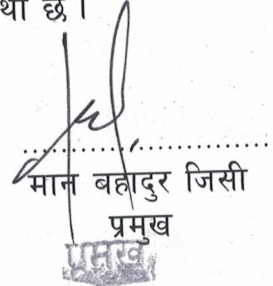 था छ।
मान बहादुर जिसी
प्रमुख
प्रमुख